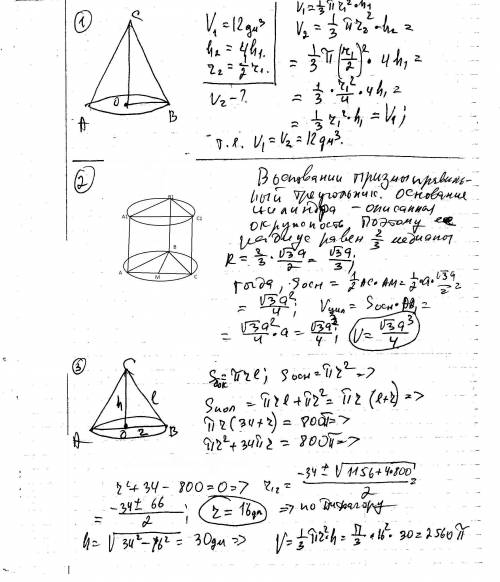 ①
C
A
O
B
V₁ = 12 дм³
h₂ = 4h₁.
r₂ = 1/2 r₁.
V₂ - ?
V₁ = 1/3 π r₁² · h₁
V₂ = 1/3 π r₂² · h₂ =
= 1/3 π (r₁/2)² · 4h₁ =
= 1/3 · r₁²/4 · 4h₁ =
= 1/3 r₁² · h₁ = V₁;
т.е. V₁ = V₂ = 12 дм³.
②
B1
A1
C1
B
A
M
C
В основании призмы правиль-
ный треугольник. Основание
цилиндра - описанная
окружность, поэтому ее
радиус равен 2/3 медианы
R = 2/3 · √3a/2 = √3a/3;
тогда, Sосн = 1/2 AC · AM = 1/2 · a · √3a/2 =
= √3a²/4; Vцил = Sосн · BB₁ =
= √3a²/4 · a = √3a³/4; V = √3a³/4
③
C
h
l
A
O
r
B
Sбок = πrl; Sосн = πr² =>
Sпол = πrl + πr² = πr (l+r) =>
πr (34 + r) = 800π =>
πr² + 34πr = 800π =>
r² + 34 - 800 = 0 => r₁,₂ = (-34 ± √(1156 + 4·800))/2 =
= (-34 ± 66)/2; r = 16 дм => по Пифагору
h = √(34² - 16²) = 30 дм => V = 1/3 πr²h = π/3 · 16² · 30 = 2560 π